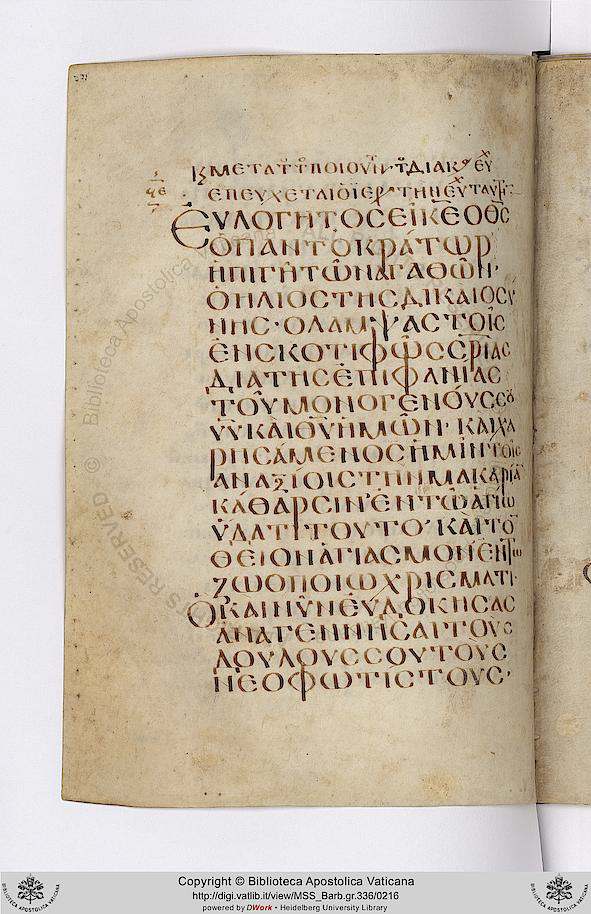 Κ ΜΕΤΑ Τ͞ ΠΟΙΟΥΝ Τ ΔΙΑΚ ΕΥΧ
ϟΕ
ΕΠΕΥΧΕΤΑΙ Ο ΙΕΡ ΤΗΝ ΕΥΧ ΤΑΥΤ
ΕΥΛΟΓΗΤΟΣ ΕΙ Κ͞Ε Ο Θ͞Σ
Ο ΠΑΝΤΟΚΡΑΤΩΡ
Η ΠΙΓΗ ΤΩΝ ΑΓΑΘΩΝ·
Ο ΗΛΙΟΣ ΤΗΣ ΔΙΚΑΙΟΣΥ
ΝΗΣ· Ο ΛΑΜΨΑΣ ΤΟΙΣ
ΕΝ ΣΚΟΤΙ ΦΩΣ Σ͞Ρ͞ΙΑΣ
ΔΙΑ ΤΗΣ ΕΠΙΦΑΝΙΑΣ
ΤΟΥ ΜΟΝΟΓΕΝΟΥΣ ΣΟΥ
Υ͞Υ ΚΑΙ Θ͞Υ ΗΜΩΝ· ΚΑΙ ΧΑ
ΡΗΣΑΜΕΝΟΣ ΗΜΙΝ ΤΟΙΣ
ΑΝΑΞΙΟΙΣ ΤΗΝ ΜΑΚΑΡΙΑΝ
ΚΑΘΑΡΣΙΝ ΕΝ ΤΩ ΑΓΙΩ
ΥΔΑΤΙ ΤΟΥΤΟ· ΚΑΙ ΤΟΝ
ΘΕΙΟΝ ΑΓΙΑΣΜΟΝ ΕΝ ΤΩ
ΖΩΟΠΟΙΩ ΧΡΙΣΜΑΤΙ·
Ο ΚΑΙ ΝΥΝ ΕΥΔΟΚΗΣΑΣ
ΑΝΑΓΕΝΝΗΣΑΙ ΤΟΥΣ
ΔΟΥΛΟΥΣ ΣΟΥ ΤΟΥΣ
ΝΕΟΦΩΤΙΣΤΟΥΣ·
Copyright © Biblioteca Apostolica Vaticana
http://digi.vatlib.it/view/MSS_Barb.gr.336/0216
powered by DWork • Heidelberg University Library